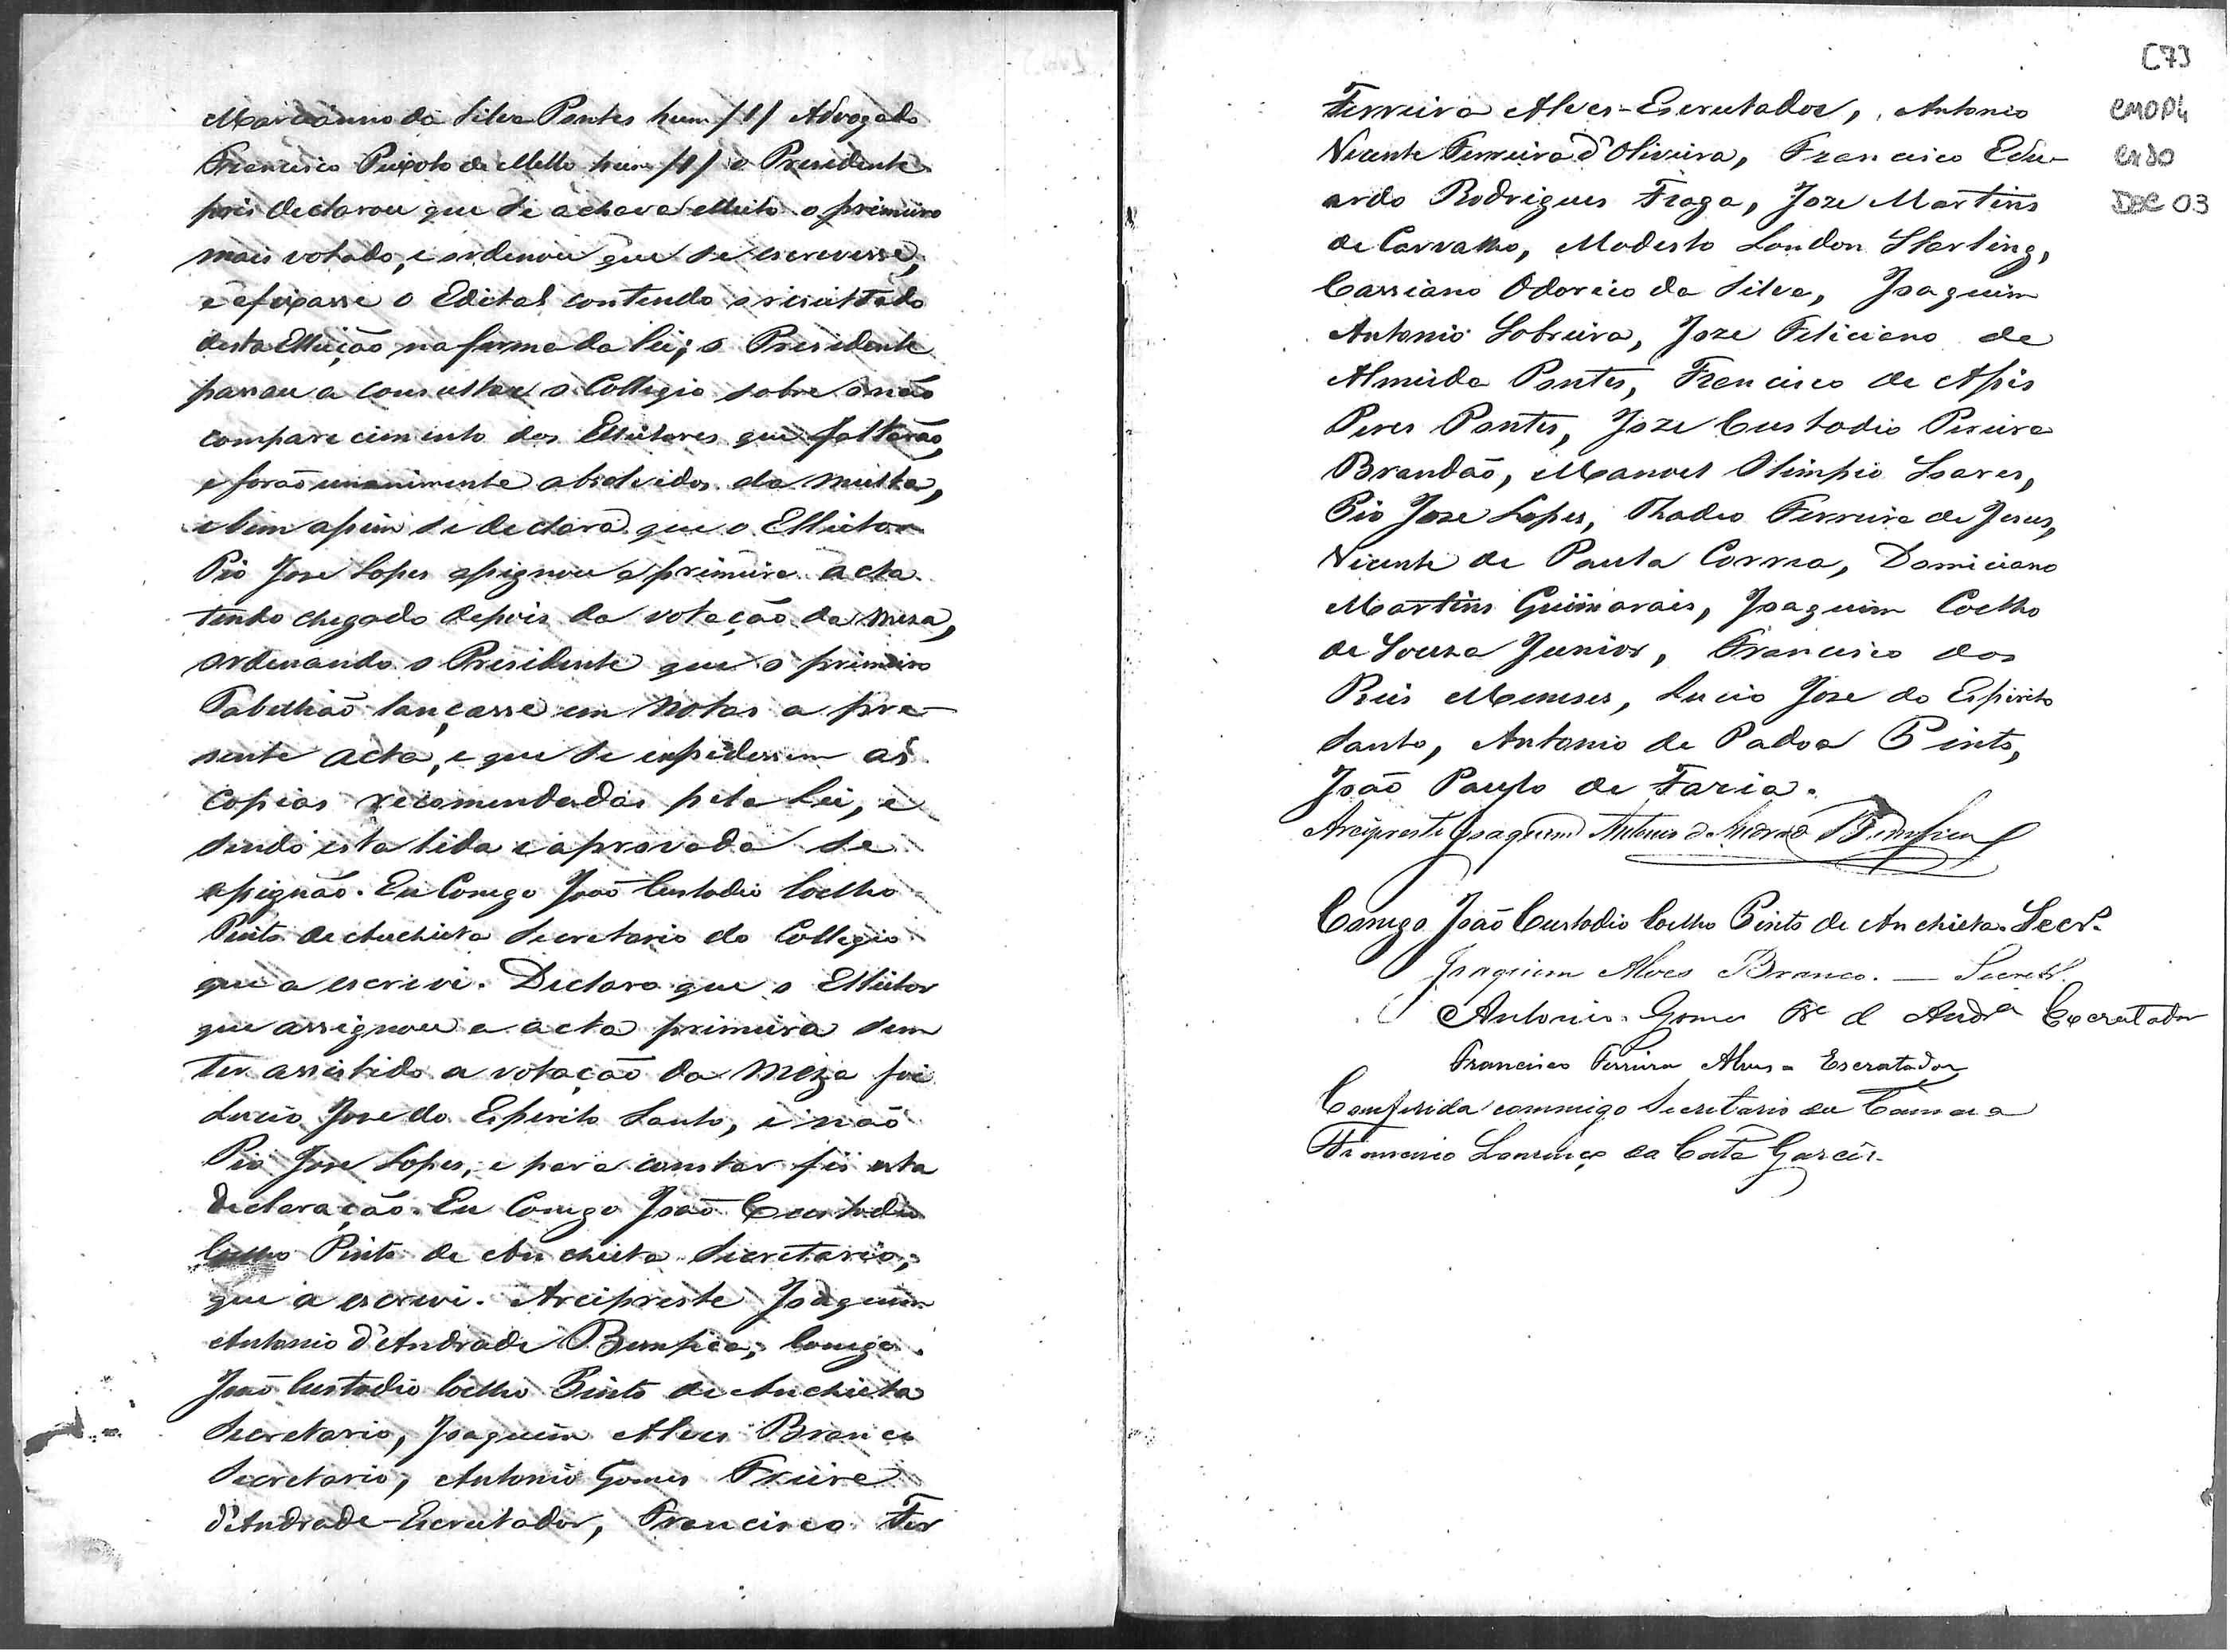 Marcianno da Silva Pontes hum /1/ Advogado
Francisco Peixoto de Mello hum /1/ o Presidente
pois declarou que se achava elleito o primeiro
mais votado, e ordenou que se escrevesse,
e afixasse o Edital contendo o resultado
desta Elleição na forma da Lei; o Presidente
passou a consultar o Collegio sobre o não
comparecimento dos Elleitores que faltarão,
e forão unanimente absolvidos da multa,
e bem assim se declara que o Elleitor
Pio Jose Lopes assignou a primeira acta
tendo chegado depois da votação da mesa,
ordenando o Presidente que o primeiro
Tabellião lançasse em Notas a pre-
sente acta, e que se expedissem as
copias recomendadas pela Lei, e
sendo esta lida e aprovada se
assignão. Eu Conego João Custodio Coelho
Pinto de Anchieta Secretario do Collegio
que a escrevi. Declaro que o Elleitor
que assignou a acta primeira sem
ter assistido a votação da Meza foi
Lucio Jose do Espirito Santo, e não
Pio Jose Lopes, e para constar fiz esta
declaração. Eu Conego João Custodio
Coelho Pinto de Anchieta Secretario,
que a escrevi. Arcipreste Joaquim
Antonio d'Andrade Bemfica, Conego
João Custodio Coelho Pinto de Anchieta
Secretario, Joaquim Alves Branco
Secretario, Antonio Gomes Freire
d'Andrade-Escrutador, Francisco Fer
[7]
CMOP4
CX80
DOC 03
Ferreira Alves-Escrutador, Antonio
Vicente Ferreira d'Oliveira, Francisco Edu-
ardo Rodrigues Fraga, Joze Martins
de Carvalho, Modesto London Starling,
Cassiano Odorico da Silva, Joaquim
Antonio Sobreira, Joze Feliciano de
Almeida Pontes, Francisco de Assis
Peres Pontes, Joze Custodio Pereira
Brandão, Manoel Olimpio Soares,
Pio Joze Lopes, Thadeo Ferreira de Jesus,
Vicente de Paula Correa, Domiciano
Martins Guimarais, Joaquim Coelho
de Souza Junior, Francisco dos
Reis Meneses, Lucio Jose do Espirito
Santo, Antonio de Padoa Pinto,
João Paulo de Faria.
Arcipreste Joaquim Antonio de Andrade Bemfica
Conego João Custodio Coelho Pinto de Anchieta. Secr.º
Joaquim Alves Branco. — Secret.º
Antonio Gomes Fre d Andra Escrutador
Francisco Ferreira Alves - Escrutador
Conferida commigo Secretario da Camara
Francisco Lourenço da Costa